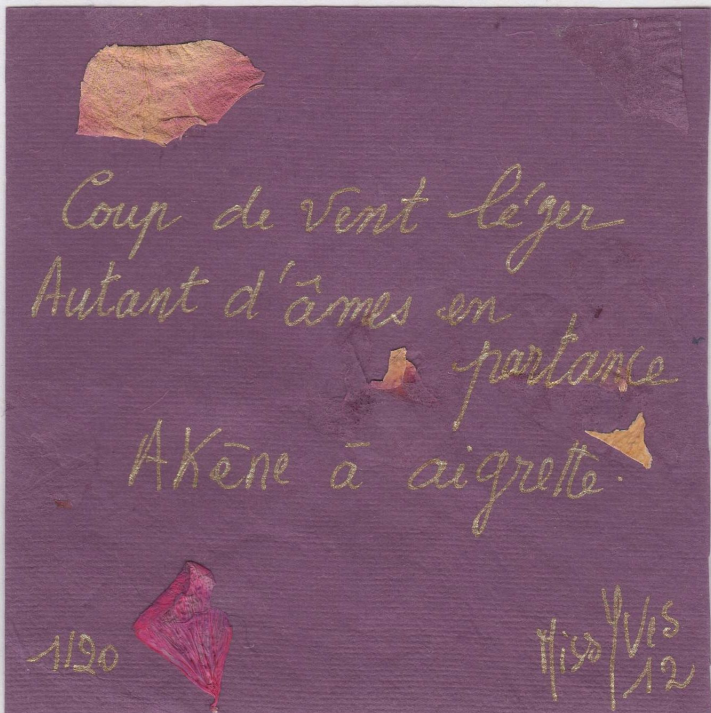 Coup de vent léger
Autant d'âmes en
partance
AKēne ā aigrette.
1/20
Miss Yves
12